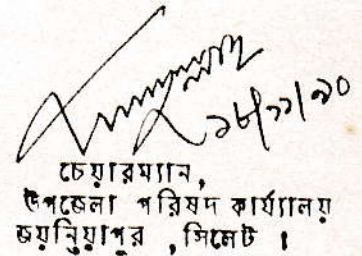 ১৮/১১/৯০
চেয়ারম্যান,
উপজেলা পরিষদ কার্য্যালয়
জয়ন্তিয়াপুর , সিলেট ।